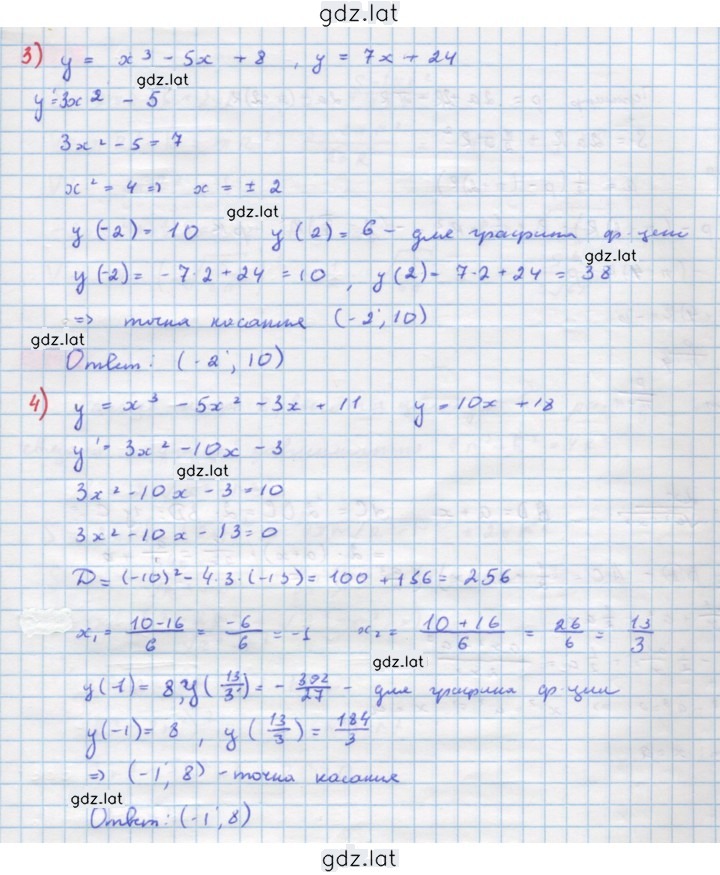 gdz.lat
3) y = x³ - 5x + 8 , y = 7x + 24
gdz.lat
y' = 3x² - 5
3x² - 5 = 7
x² = 4 => x = ± 2
gdz.lat
y(-2) = 10 y(2) = 6 - для графика ф-ции
gdz.lat
y(-2) = -7·2 + 24 = 10 , y(2) = 7·2 + 24 = 38
=> точка касания (-2; 10)
gdz.lat
Ответ: (-2; 10)
4) y = x³ - 5x² - 3x + 11 y = 10x + 18
y' = 3x² - 10x - 3
gdz.lat
3x² - 10x - 3 = 10
3x² - 10x - 13 = 0
D = (-10)² - 4·3·(-13) = 100 + 156 = 256
x₁ = (10-16)/6 = -6/6 = -1 x₂ = (10+16)/6 = 26/6 = 13/3
gdz.lat
y(-1) = 8, y(13/3) = -392/27 - для графика ф-ции
y(-1) = 8 , y(13/3) = 184/3
=> (-1; 8) - точка касания
gdz.lat
Ответ: (-1; 8)
gdz.lat